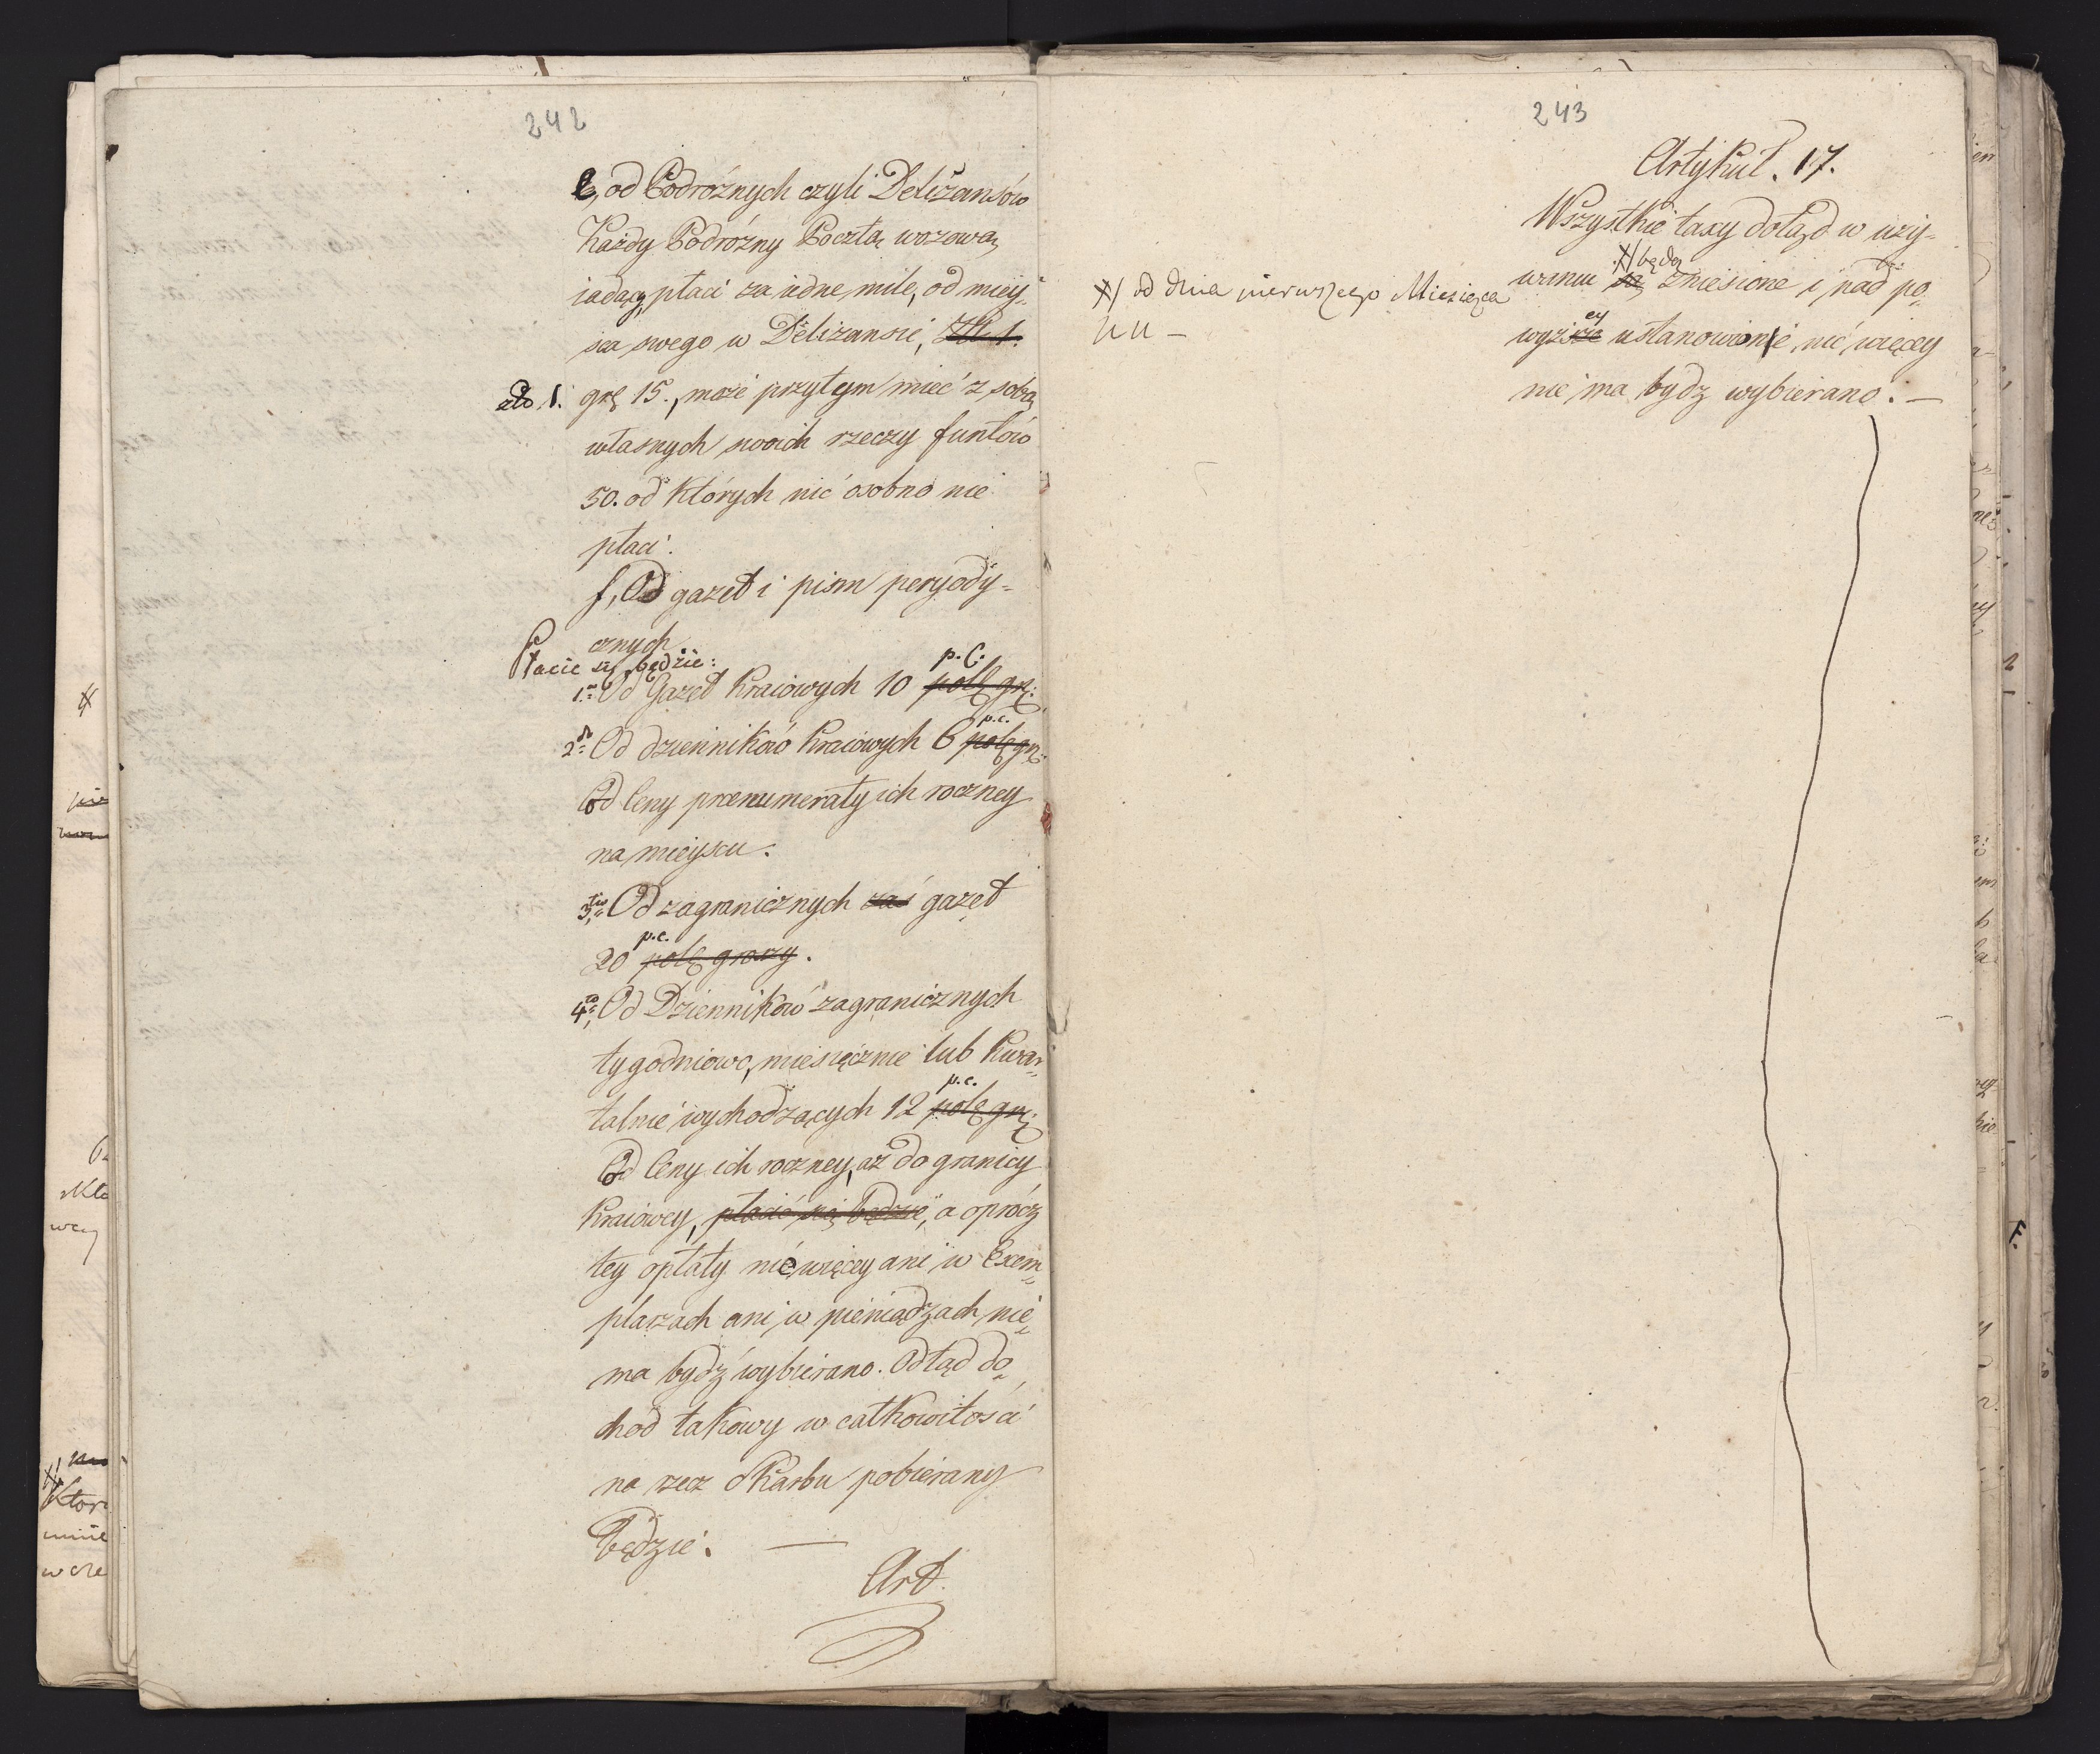 242
e, od Podróżnych czyli Deliżansów
Każdy Podróżny Pocztą wozową
iadący, płaci za iedne mile, od miey-
sca swego w Deliżansie, Zł. 1.
zło 1. grę 15., może przytym mieć z sobą
własnych swoich rzeczy funtów
50. od których nić osobno nie
płaci.
f, Od gazet i pism peryody-
cznych
Płacić się będzie:
p. C.
1mo Od Gazet Kraiowych 10 polę grę:
p. c.
2do Od dzienników Kraiowych 6 polę grę:
Od Ceny prenumeraty ich roczney
na mieyscu.
3tio Od zagranicznych zaś gazet
p. c.
20 polę groszy.
4to, Od Dzienników zagranicznych
tygodniowo, miesięcznie lub Kwar-
p. c.
talnie wychodzących 12 polę grę:
Od Ceny ich roczney, aż do granicy
Kraiowey, płacić się będzie, a oprócz
tey opłaty nic więcey ani w Exem-
plarzach ani w pieniądzach nie
ma bydź wybierano. Odtąd do-
chód takowy w całkowitości
na rzecz Skarbu pobierany
będzie. —
Art.
243
Artykuł. 17.
Wszystkie taxy dotąd w uży-
X/ będą
waniu są zniesione i nad po-
X/ od dnia pierwszego Miesiąca
NN —
ey
wyższe ustanowione, nić więcey
nie ma bydz wybierano. —